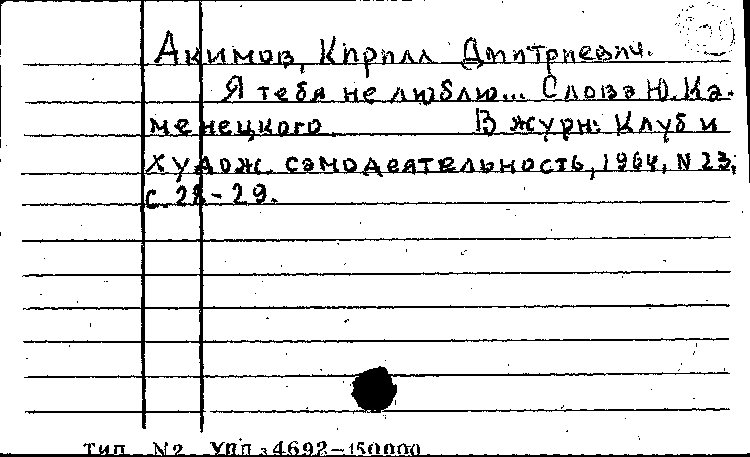 Акимов, Кирилл Дмитриевич.
Я тебя не люблю... Слова Ю. Ка-
менецкого. В журн: Клуб и
худож. самодеятельность, 1964, N 23,
с. 28-29.
Тип N2 УПП з 4692-150000